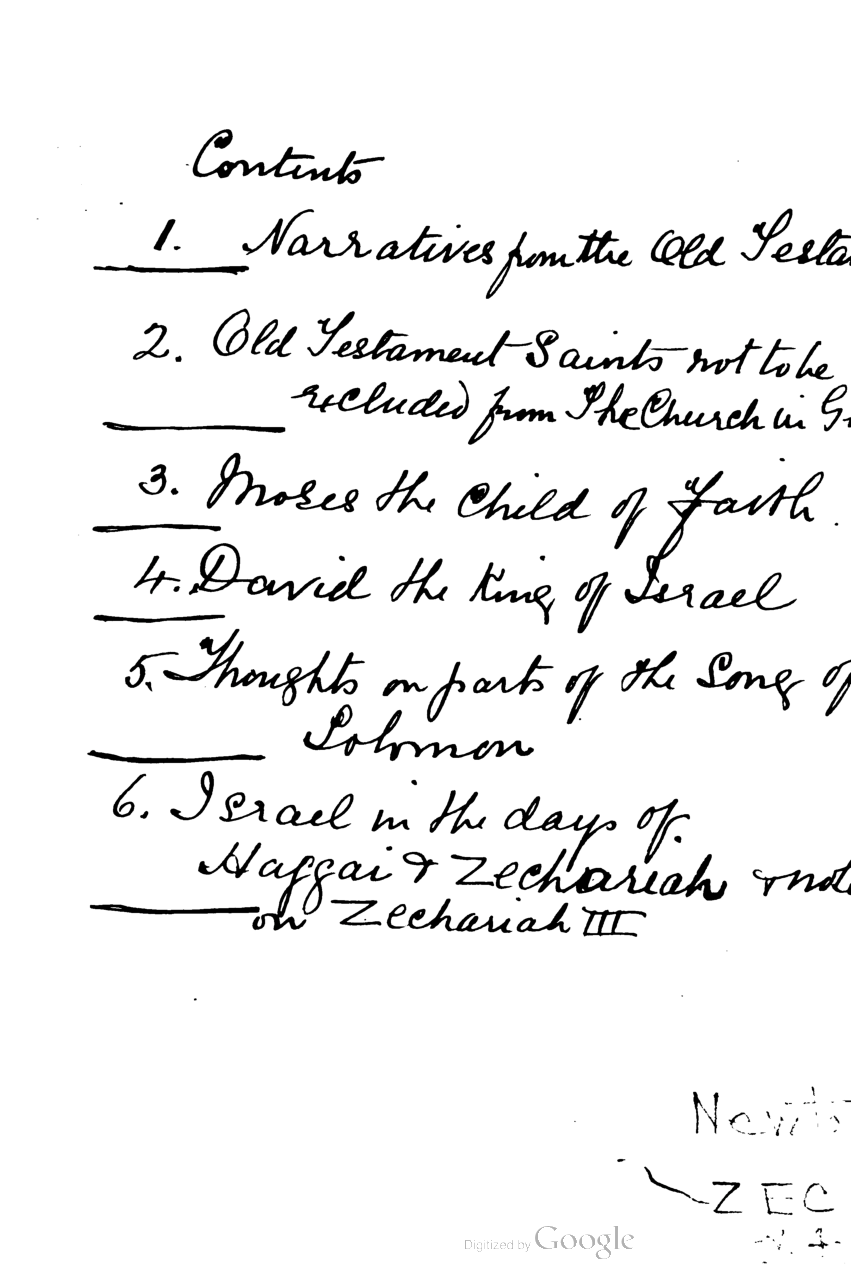 Contents
1. Narratives from the Old Testa
2. Old Testament Saints not to be
excluded from The Church in G
3. Moses the Child of Faith.
4. David the King of Israel
5. Thoughts on parts of the Song of
Solomon
6. Israel in the days of
Haggai & Zechariah & note
on Zechariah III
Newto
ZEC
Digitized by Google